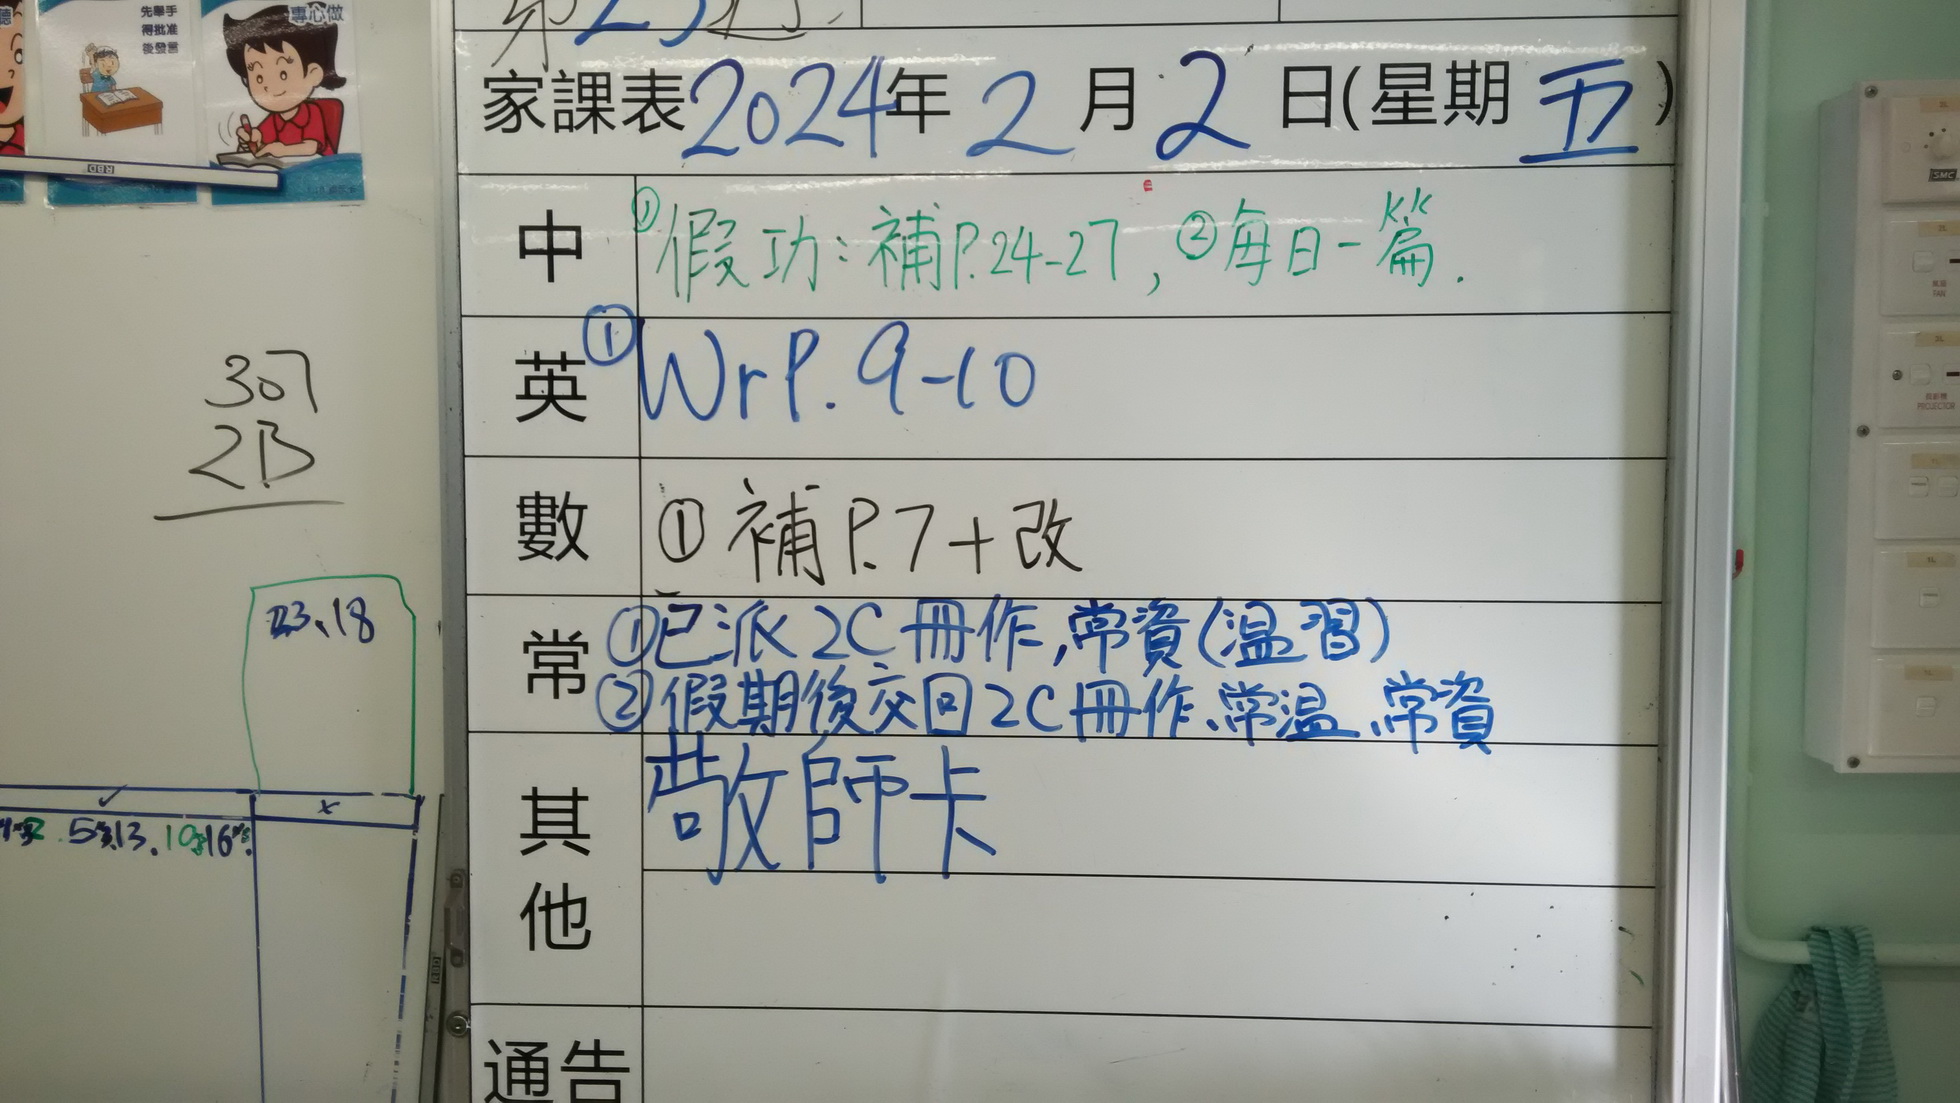 先舉手
得批准
後發言
專心做
家課表2024年2月2日(星期五)
中 ①假功：補P.24-27, ②每日一篇.
英 ①Wr P. 9-10
數 ①補P.7+改
常 ①已派2C冊作,常資(温習)
②假期後交回2C冊作、常温、常資
其他 敬師卡
通告
307
2B
23、18
✓ x
SMC
FAN
PROJECTOR